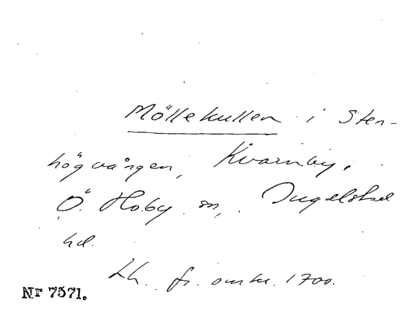 Möllekullen i Sten-
högvången, Kvarnby,
Ö. Hoby sn, Ingelstad
hd.
Lk. fr. omkr. 1700.
Nr 7571.